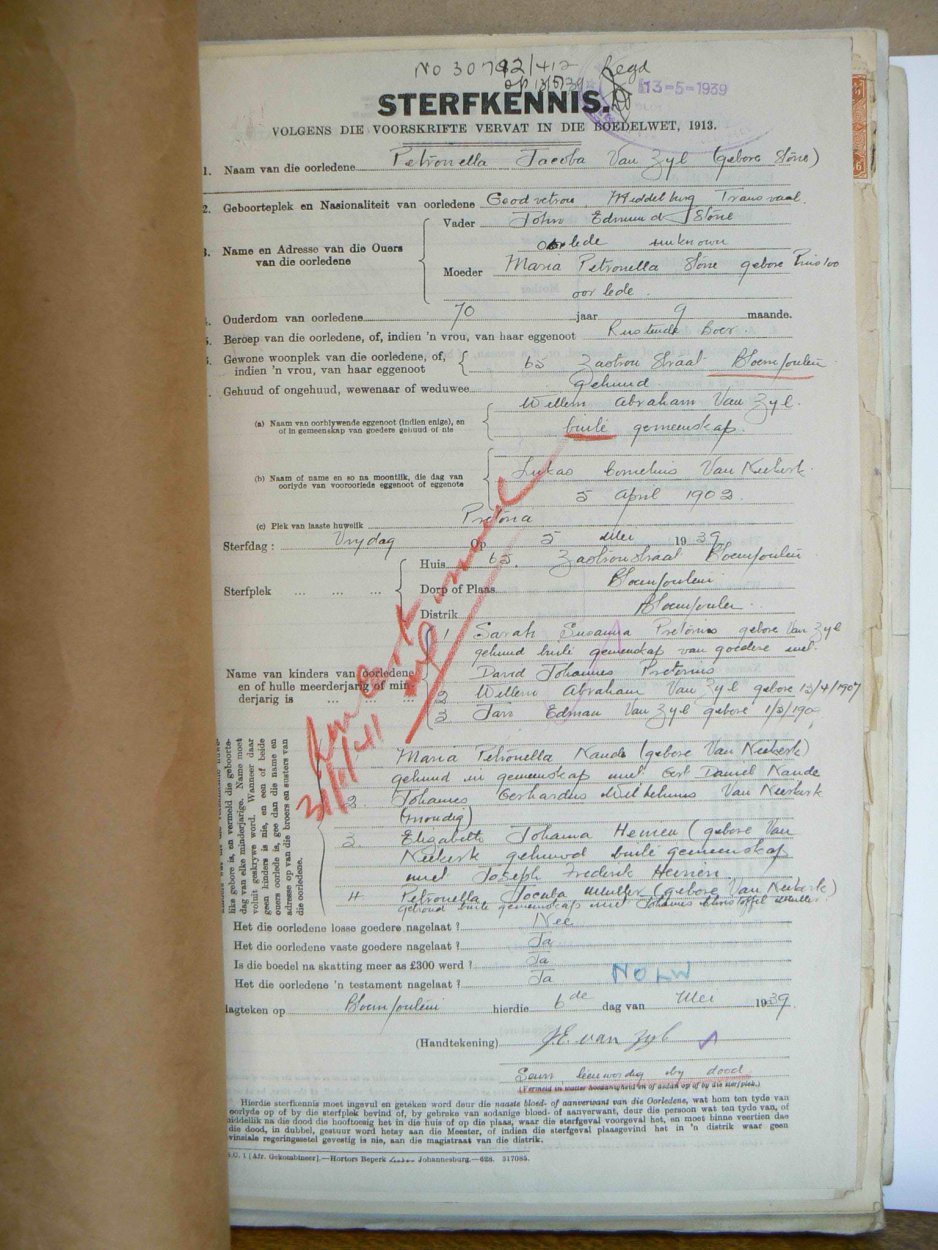 No 30792/412 Regd
13-5-1939
STERFKENNIS.
VOLGENS DIE VOORSKRIFTE VERVAT IN DIE BOEDELWET, 1913.
1. Naam van die oorledene Petronella Jacoba Van Zyl (gebore Stone)
2. Geboorteplek en Nasionaliteit van oorledene Middelburg Transvaal.
3. Name en Adresse van die Ouers van die oorledene
Vader John Edmund Stone
unknown
Moeder Maria Petronella Stone gebore
oorlede.
Ouderdom van oorledene 70 jaar 9 maande.
Beroep van die oorledene, of, indien 'n vrou, van haar eggenoot Rustende Boer.
Gewone woonplek van die oorledene, of, indien 'n vrou, van haar eggenoot 65 Zastron Straat Bloemfontein
Gehuud of ongehuud, wewenaar of weduwee Gehuud
(a) Naam van oorblywende eggenoot (indien enige), en of in gemeenskap van goedere gehuud of nie
Willem Abraham Van Zyl.
buite gemeenskap.
(b) Naam of name en so na moontlik, die dag van oorlyde van vooroorlede eggenoot of eggenote
Lukas Cornelius Van Niekerk.
5 April 1902.
(c) Plek van laaste huwelik Pretoria
Sterfdag: Vrydag Op 5 Mei 1939
Sterfplek ... ... ...
Huis 65. Zastronstraat Bloemfontein
Dorp of Plaas Bloemfontein
Distrik Bloemfontein.
Name van kinders van oorledene en of hulle meerderjarig of minderjarig is ... ... ...
1 Sarah Susanna Pretorius gebore Van Zyl
gehuud buite gemeenskap van goedere met
David Johannes Pretorius
2 Willem Abraham Van Zyl gebore 12/4/1907
3 Jan Edman Van Zyl gebore
31/1/41
like gebore is, en vermeld die geboorte-
dag van elke minderjarige. Name moet
voluit geskrywe word. Wanneer daar
geen kinders is nie, en een of beide
ouers oorlede is, gee dan die name en
adresse op van die broers en susters van
die oorledene.
Maria Petronella Naude (gebore Van Niekerk)
gehuud in gemeenskap met Daniel Naude
2. Johannes Gerhardus Wilhelmus Van Niekerk
(mondig)
3 Elisabeth Johanna (gebore Van
Niekerk gehuud buite gemeenskap
met Joseph Frederik
4 Petronella Jacoba Muller (gebore Van Niekerk)
getroud buite gemeenskap met Johannes Christoffel Muller.
Het die oorledene losse goedere nagelaat? Nee
Het die oorledene vaste goedere nagelaat? Ja
Is die boedel na skatting meer as £300 werd? Ja
Het die oorledene 'n testament nagelaat? Ja
dagteken op Bloemfontein hierdie 6de dag van Mei 1939.
(Handtekening) J.E. van Zyl
Seun teenwoordig by dood
(Vermeld in watter hoedanigheid en of aldan op of by die sterfplek.)
Hierdie sterfkennis moet ingevul en geteken word deur die naaste bloed- of aanverwant van die Oorledene, wat hom ten tyde van
oorlyde op of by die sterfplek bevind of, by gebreke van sodanige bloed- of aanverwant, deur die persoon wat ten tyde van, of
middelik na die dood die hooftoesig het in die huis of op die plaas, waar die sterfgeval voorgeval het, en moet binne veertien dae
die dood, in dubbel, gestuur word hetsy aan die Meester, of indien die sterfgeval plaasgevind het in 'n distrik waar geen
vinsiale regeringsetel gevestig is nie, aan die magistraat van die distrik.
1 [Afr. Gekombineer].—Hortors Beperk Johannesburg.—628. 517085.